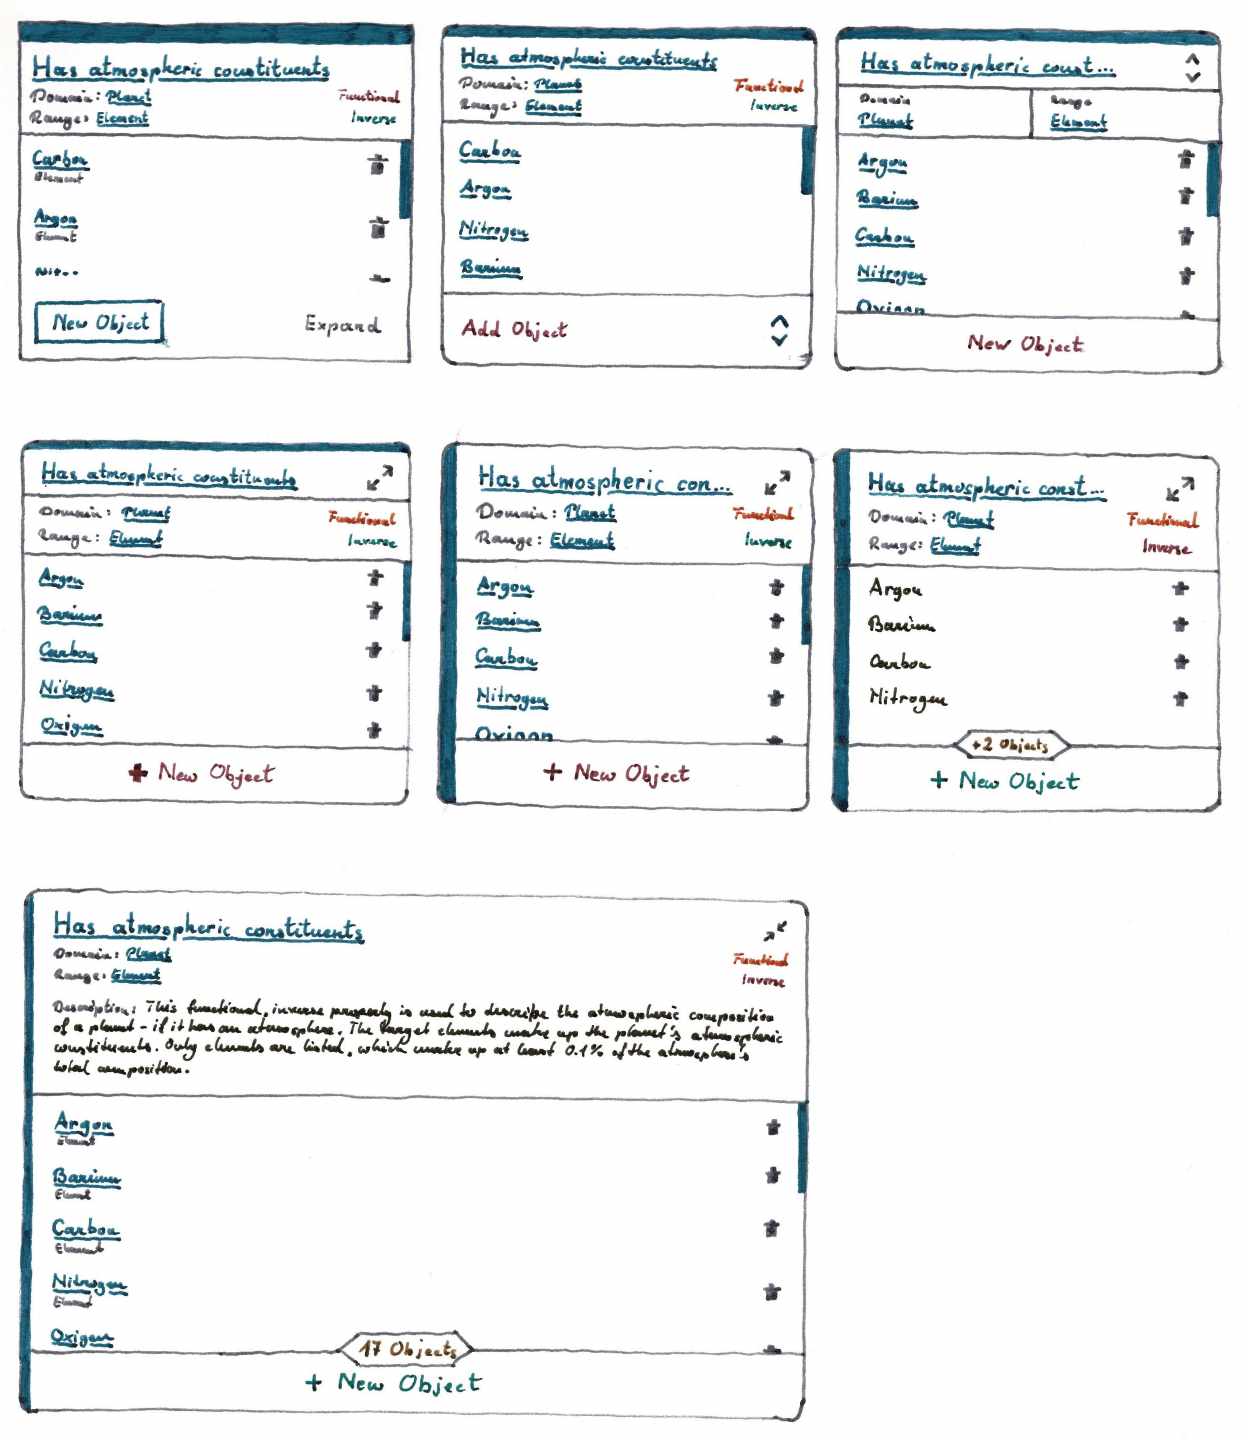 Has atmospheric constituents
Domain: Planet
Functional
Range: Element
Inverse
Carbon
Element
Argon
Element
Nit..
New Object
Expand
Has atmospheric constituents
Domain: Planet
Functional
Range: Element
Inverse
Carbon
Argon
Nitrogen
Barium
Add Object
Has atmospheric const...
Domain
Range
Planet
Element
Argon
Barium
Carbon
Nitrogen
Oxigen
New Object
Has atmospheric constituents
Domain: Planet
Functional
Range: Element
Inverse
Argon
Barium
Carbon
Nitrogen
Oxigen
+ New Object
Has atmospheric con...
Domain: Planet
Functional
Range: Element
Inverse
Argon
Barium
Carbon
Nitrogen
Oxigen
+ New Object
Has atmospheric const...
Domain: Planet
Functional
Range: Element
Inverse
Argon
Barium
Carbon
Nitrogen
+2 Objects
+ New Object
Has atmospheric constituents
Domain: Planet
Functional
Range: Element
Inverse
Description: This functional, inverse property is used to describe the atmospheric composition
of a planet - if it has an atmosphere. The target elements make up the planet's atmospheric
constituents. Only elements are listed, which make up at least 0.1% of the atmosphere's
total composition.
Argon
Element
Barium
Element
Carbon
Element
Nitrogen
Element
Oxigen
17 Objects
+ New Object